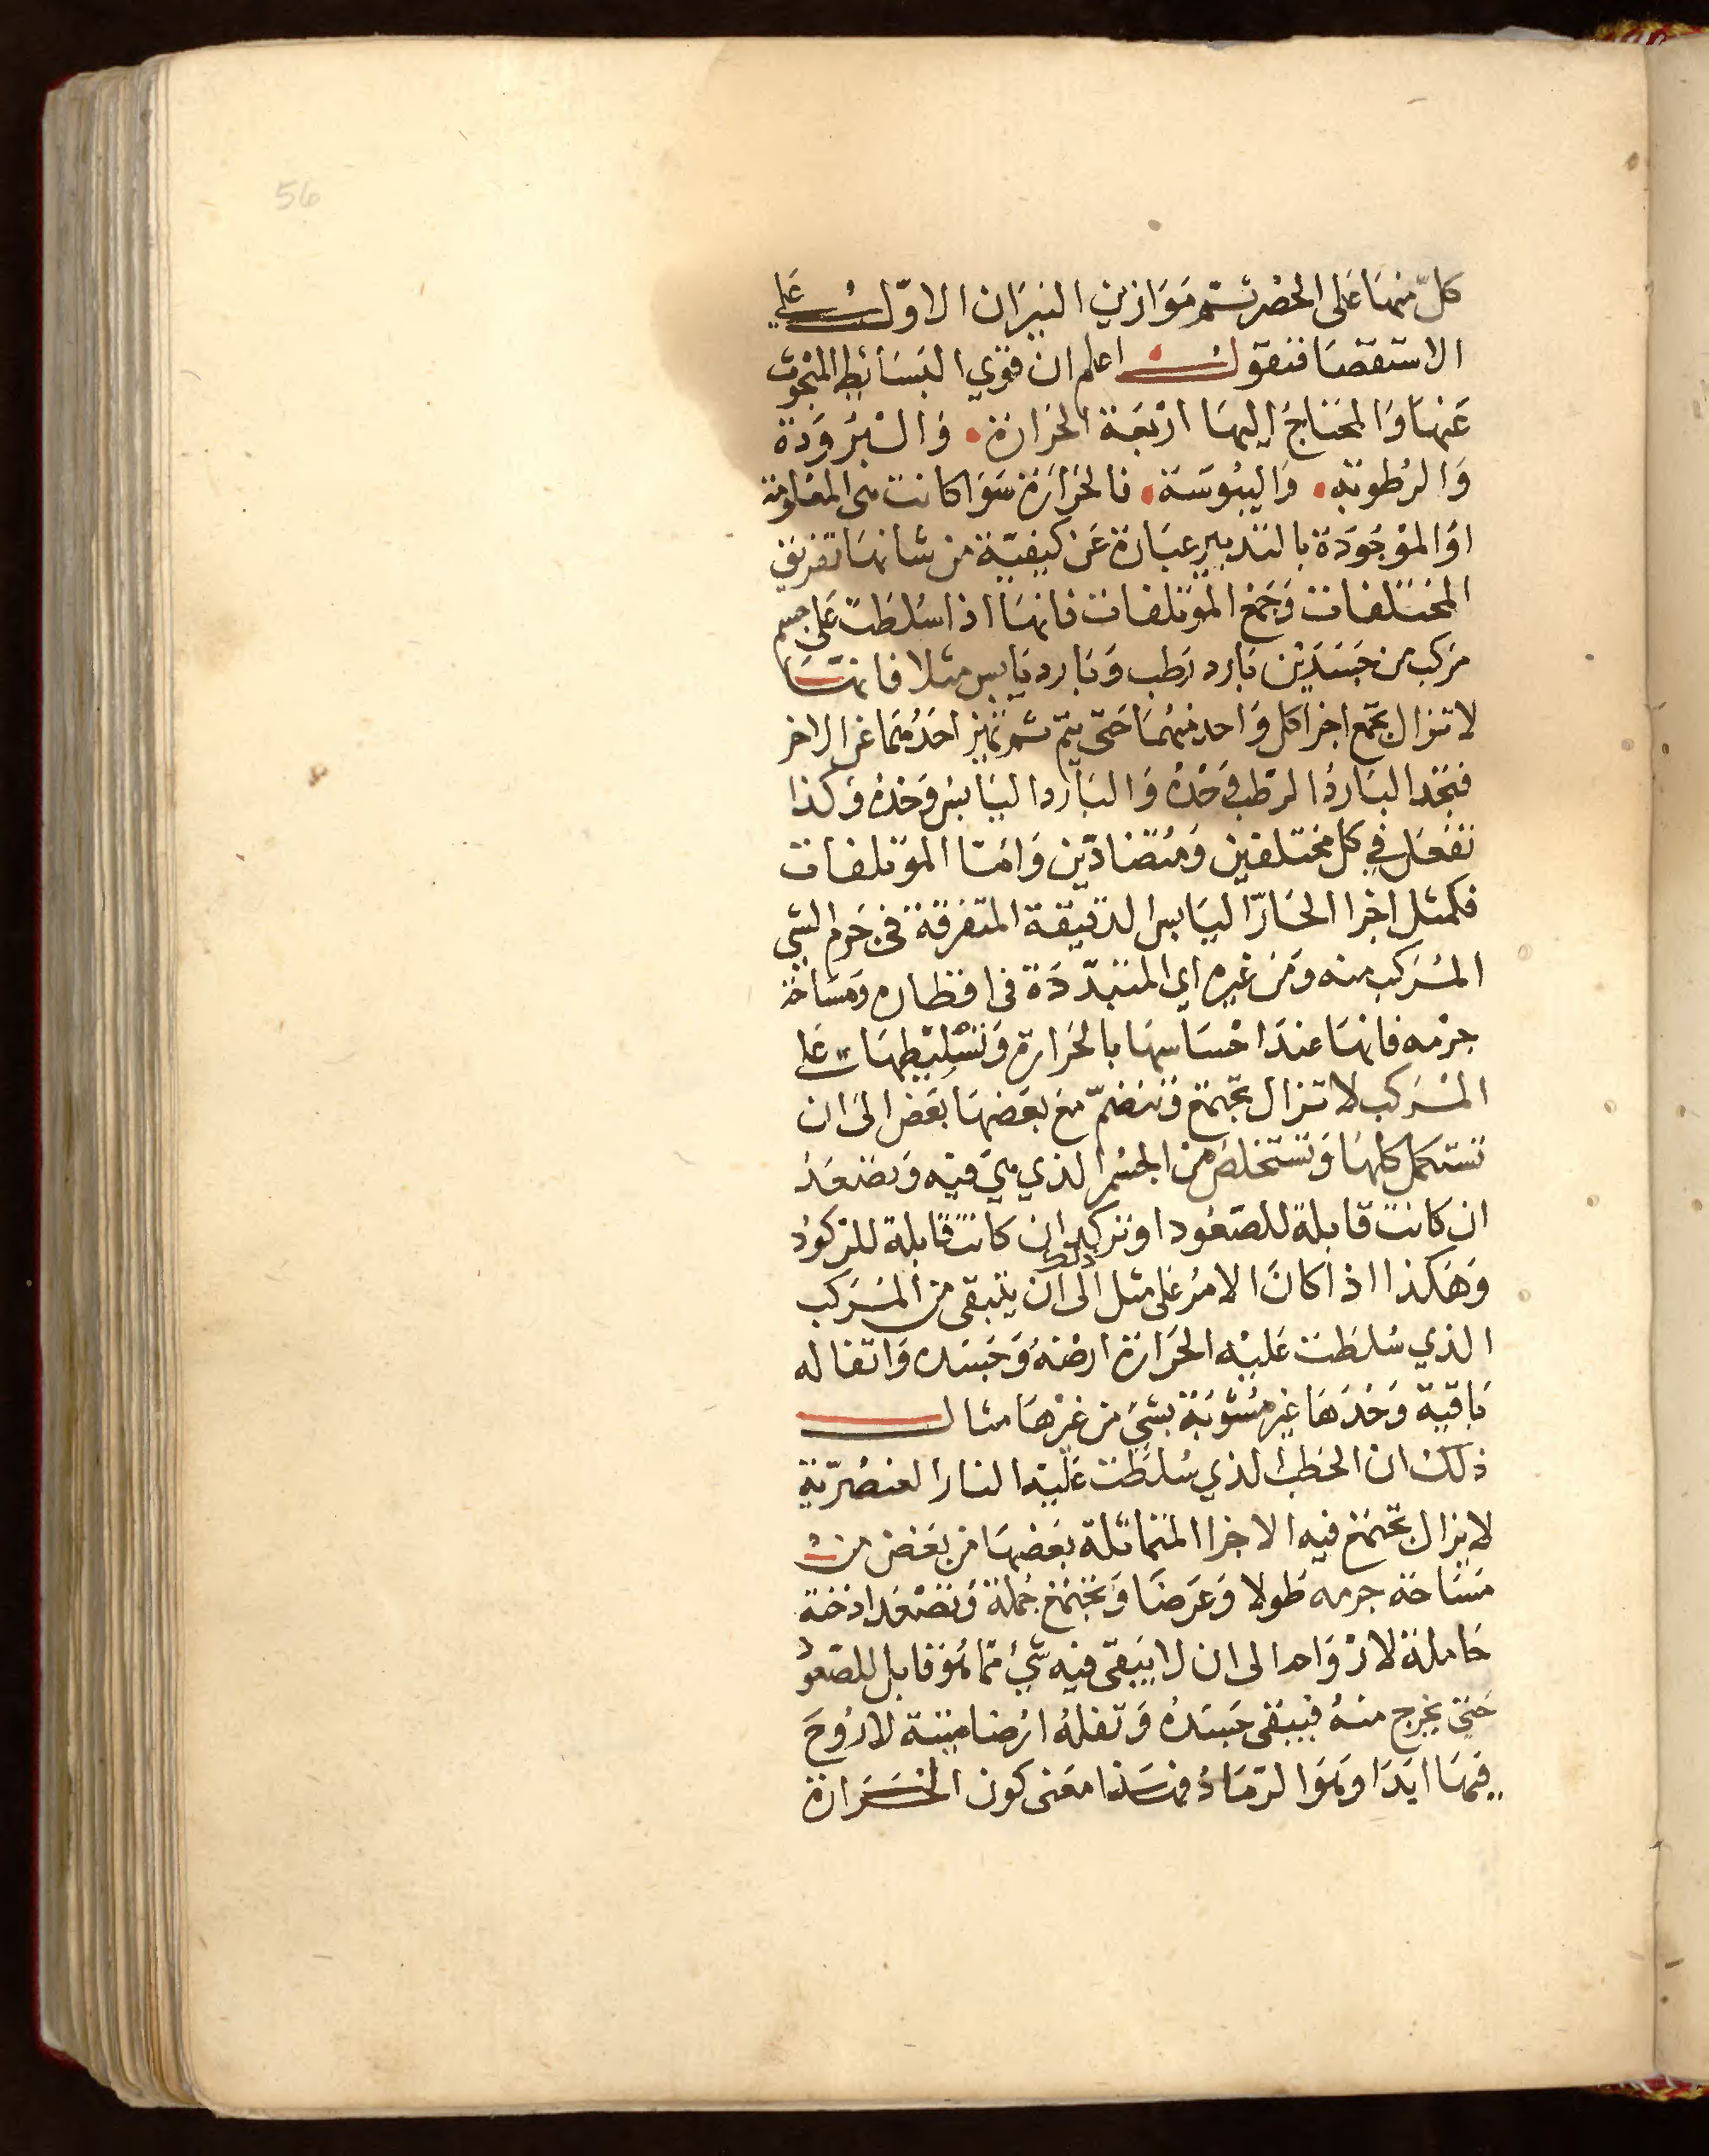 56
كلّ منها على الحصر ثم موازين النيران الاوّل على
الاستقصا فنقول اعلم ان قوي البسائط المبحوث
عنها والمحتاج اليها اربعة الحرارة والبرودة
والرطوبة واليبوسة فالحرارة سوا كانت هي المعلومة
او الموجودة بالتدبير عبارة عن كيفيّة من شانها تفريق
المختلفات وجمع الموتلفات فانها اذا سلطت على جسم
مركب من جسدين بارد رطب وبارد يابس مثلا فانها
لا تزال تجمع اجزا كل واحد منهما حتى يتم ثم تميز احدهما عن الاخر
فتجد البارد الرطب وحده والبارد اليابس وحده وكذا
تفعل في كل مختلفين ومتضادّين وامّا الموتلفات
فكمثل اجزا الحارّ اليابس الدقيقة المتفرقة في جرم الشي
المركب منه ومن غيره اي المتبدّدة في اقطاره ومساحة
جرمه فانها عند احساسها بالحرارة وتسليطها على
المركب لا تزال تجتمع وتنضمّ مع بعضها بعض الى ان
تستكمل كلها وتستخلص من الجسم الذي هي فيه وتصعد
ان كانت قابلة للصعود او تركد ان كانت قابلة للركود
وهكذا اذا كان الامر على مثل ذلك الى ان يتبقى من المركب
الذي سلطت عليه الحرارة ارضه وجسده واتفاله
باقية وحدها غير مشوبة بشي من غيرها مثال
ذلك ان الحطب الذي سلطت عليه النار العنصريّة
لا يزال تجتمع فيه الاجزا المتماثلة بعضها من بعض من
مساحة جرمه طولا وعرضا وتجتمع جملة وتصعد ادخنة
حاملة لارواحه الى ان لا يبقى فيه شي ممّا هو قابل للصعود
حتى يخرج منه فيبقى جسده وتفله ارضا ميتة لا روح
فيها ابدا وهو الرماد فهذا معنى كون الحرارة